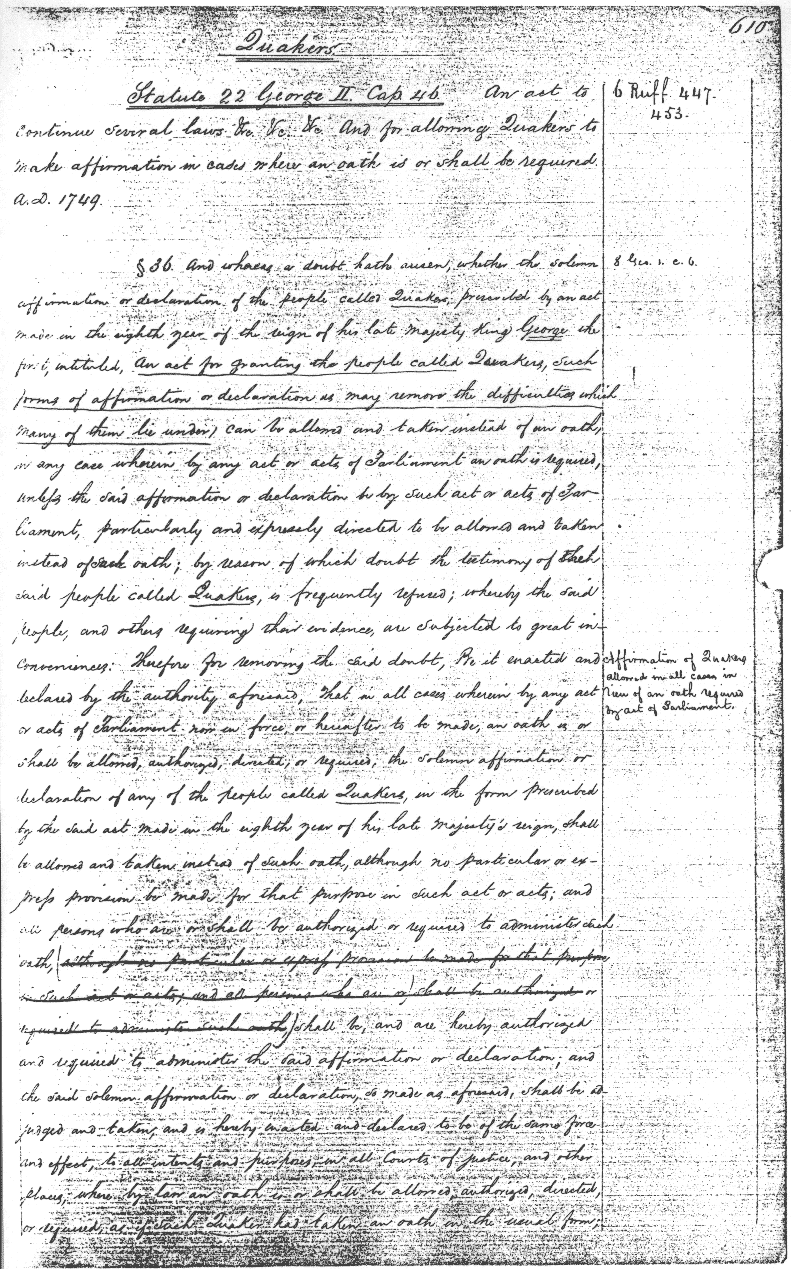 610
Quakers
Statute 22 George II. Cap. 46. An act to
continue several laws &c. &c. &c. And for allowing Quakers to
make affirmation in cases where an oath is or shall be required.
A.D. 1749.
6 Ruff. 447.
453.
§ 36. And whereas a doubt hath arisen, whether the solemn
affirmation or declaration of the people called Quakers, prescribed by an act
made in the eighth year of the reign of his late Majesty King George the
first, intituled, An act for granting the people called Quakers, such
forms of affirmation or declaration as may remove the difficulties which
many of them lie under, can be allowed and taken instead of an oath,
in any case wherein by any act or acts of Parliament an oath is required,
unless the said affirmation or declaration be by such act or acts of Par-
liament, particularly and expressly directed to be allowed and taken
instead of such oath; by reason of which doubt the testimony of the
said people called Quakers, is frequently refused; whereby the said
people, and others requiring their evidence, are subjected to great in-
conveniences: Therefore for removing the said doubt, Be it enacted and
declared by the authority aforesaid, That in all cases wherein by any act
or acts of Parliament now in force, or hereafter to be made, an oath is or
shall be allowed, authorized, directed, or required, the solemn affirmation or
declaration of any of the people called Quakers, in the form prescribed
by the said act made in the eighth year of his late Majesty's reign, shall
be allowed and taken instead of such oath, although no particular or ex-
press provision be made for that purpose in such act or acts; and
all persons who are or shall be authorized or required to administer such
oath, (although no particular or express provision be made for that purpose
in such act or acts; and all persons who are or) shall be authorized or
required to administer such oath) shall be, and are hereby authorized
and required to administer the said affirmation or declaration; and
the said solemn affirmation or declaration, so made as aforesaid, shall be ad-
judged and taken, and is hereby enacted and declared to be of the same force
and effect, to all intents and purposes, in all Courts of justice, and other
places, where by law an oath is or shall be allowed, authorized, directed,
or required, as if such Quaker had taken an oath in the usual form;
8 Geo. 1. c. 6.
Affirmation of Quakers
allowed in all cases in
lieu of an oath required
by act of Parliament.